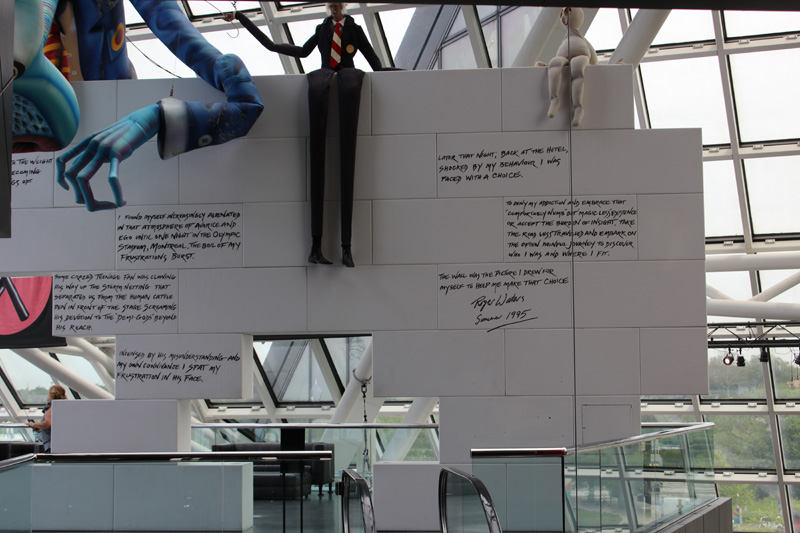 TO THE WEIGHT
ECOMING
GS OF
I FOUND MYSELF INCREASINGLY ALIENATED
IN THAT ATMOSPHERE OF AVARICE AND
EGO UNTIL ONE NIGHT IN THE OLYMPIC
STADIUM, MONTREAL, THE BOIL OF MY
FRUSTRATIONS BURST.
SOME CRAZED TEENAGE FAN WAS CLAWING
HIS WAY UP THE STORM NETTING THAT
SEPARATED US FROM THE HUMAN CATTLE
PEN IN FRONT OF THE STAGE SCREAMING
HIS DEVOTION TO THE "DEMI-GODS" BEYOND
HIS REACH.
INCENSED BY HIS MISUNDERSTANDING AND
MY OWN CONNIVANCE I SPAT MY
FRUSTRATION IN HIS FACE.
LATER THAT NIGHT, BACK AT THE HOTEL,
SHOCKED BY MY BEHAVIOUR I WAS
FACED WITH A CHOICE.
TO DENY MY ADDICTION AND EMBRACE THAT
"COMFORTABLY NUMB BUT MAGIC LESS" EXISTENCE
OR ACCEPT THE BURDEN OF INSIGHT, TAKE
THE ROAD LESS TRAVELED AND EMBARK ON
THE OFTEN PAINFUL JOURNEY TO DISCOVER
WHO I WAS AND WHERE I FIT.
THE WALL WAS THE PICTURE I DREW FOR
MYSELF TO HELP ME MAKE THAT CHOICE
Roger Waters
Summer 1995